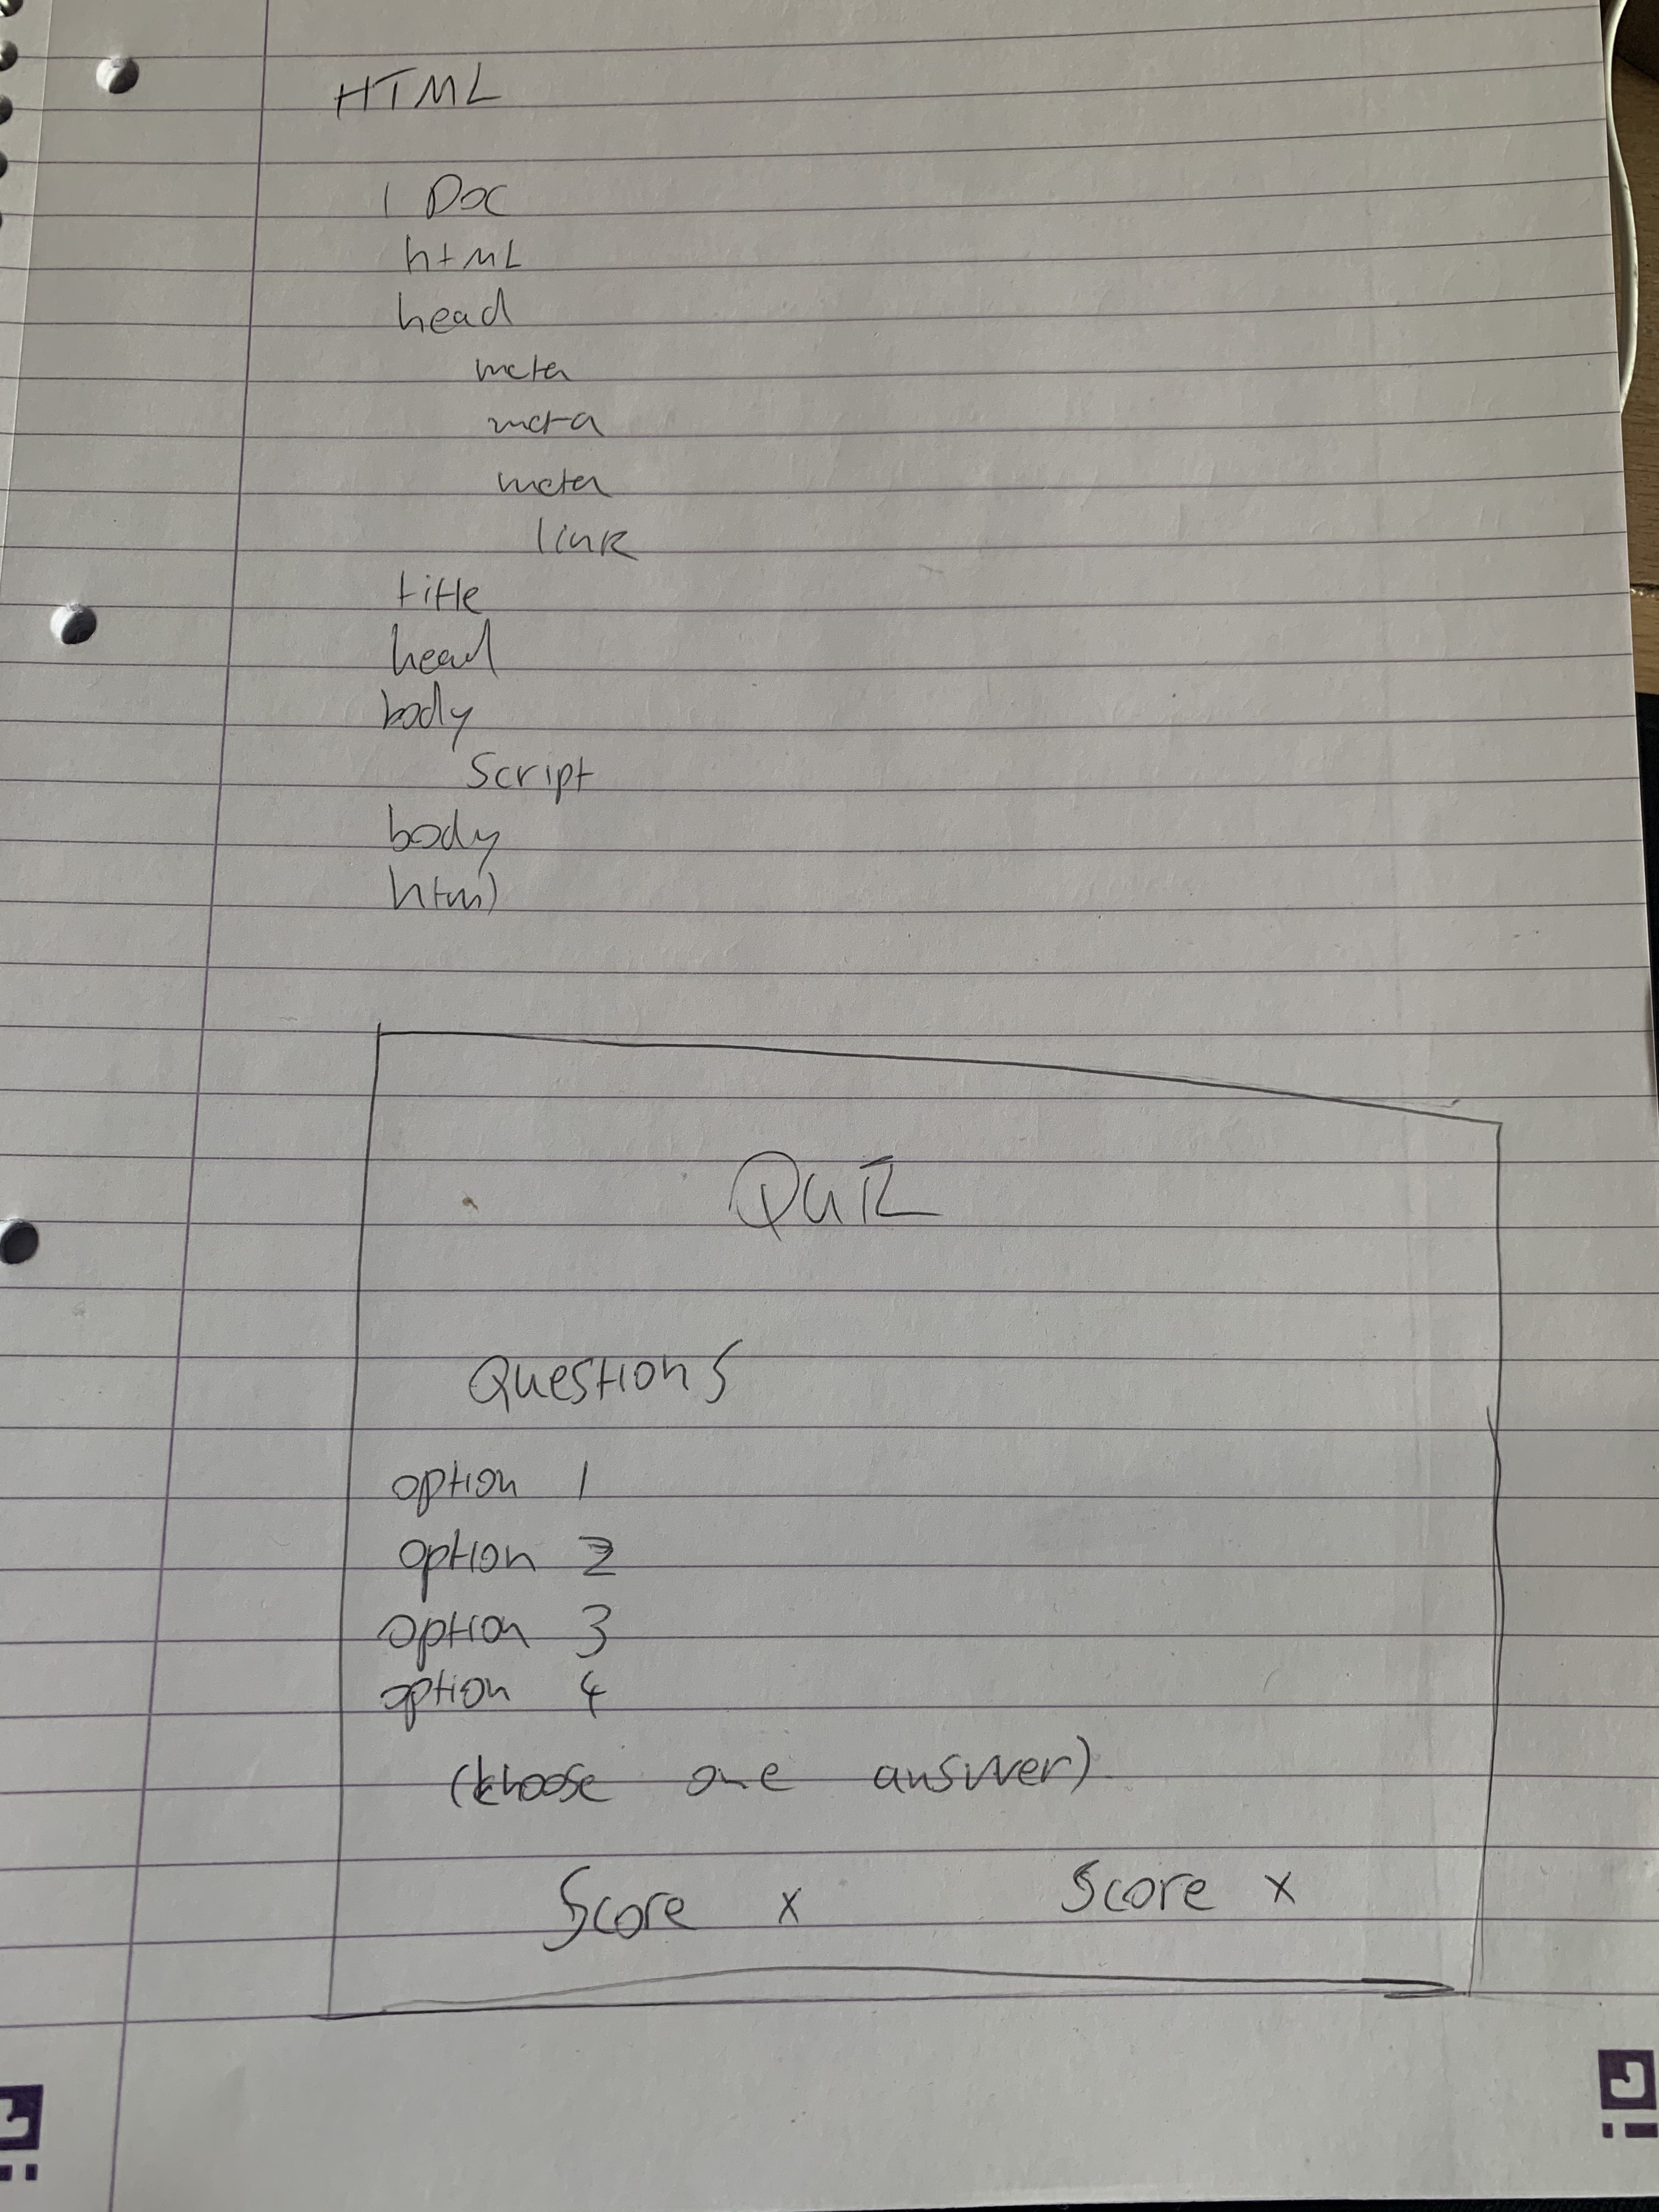 HTML
! Doc
html
head
meta
meta
meta
link
title
head
body
Script
body
html
Quiz
Questions
option 1
option 2
option 3
option 4
(choose one answer)
Score x Score x